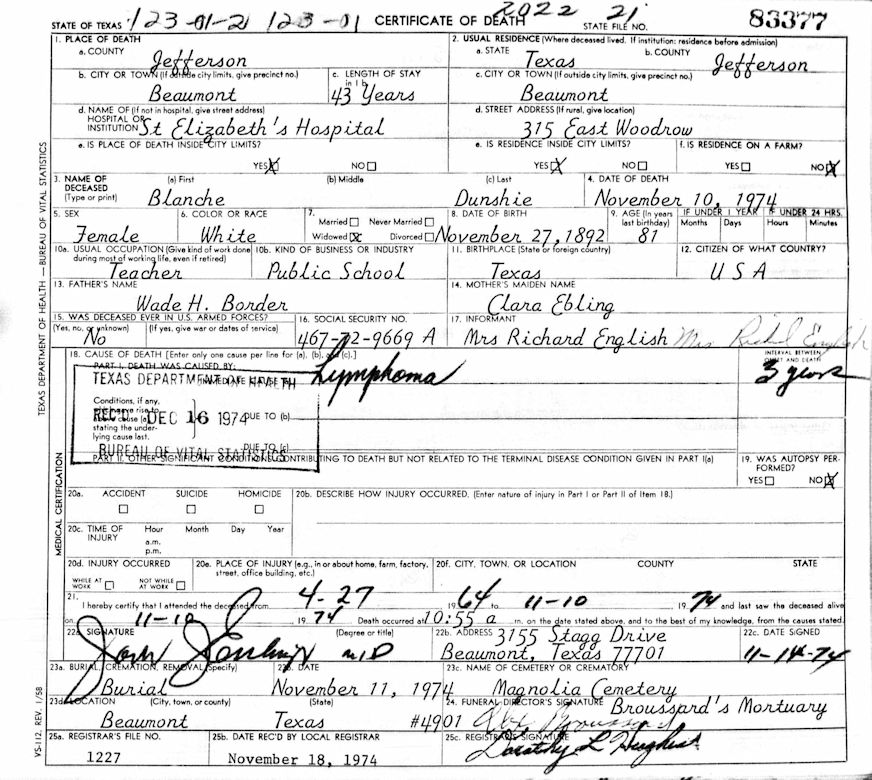 STATE OF TEXAS 123-01-21 123-01 CERTIFICATE OF DEATH 2022 21 STATE FILE NO. 83377
1. PLACE OF DEATH 2. USUAL RESIDENCE (Where deceased lived. If institution: residence before admission)
a. COUNTY Jefferson a. STATE Texas b. COUNTY Jefferson
b. CITY OR TOWN (If outside city limits, give precinct no.) Beaumont c. LENGTH OF STAY in 1 b 43 Years c. CITY OR TOWN (If outside city limits, give precinct no.) Beaumont
d. NAME OF (If not in hospital, give street address) HOSPITAL OR INSTITUTION St Elizabeth's Hospital d. STREET ADDRESS (If rural, give location) 315 East Woodrow
e. IS PLACE OF DEATH INSIDE CITY LIMITS? e. IS RESIDENCE INSIDE CITY LIMITS? f. IS RESIDENCE ON A FARM?
YES☒ NO☐ YES☒ NO☐ YES☐ NO☒
3. NAME OF DECEASED (Type or print) (a) First Blanche (b) Middle (c) Last Dunshie 4. DATE OF DEATH November 10, 1974
5. SEX Female 6. COLOR OR RACE White 7. Married☐ Never Married☐ Widowed☒ Divorced☐ 8. DATE OF BIRTH November 27, 1892 9. AGE (In years last birthday) 81 IF UNDER 1 YEAR Months Days IF UNDER 24 HRS. Hours Minutes
10a. USUAL OCCUPATION (Give kind of work done during most of working life, even if retired) Teacher 10b. KIND OF BUSINESS OR INDUSTRY Public School 11. BIRTHPLACE (State or foreign country) Texas 12. CITIZEN OF WHAT COUNTRY? U S A
13. FATHER'S NAME Wade H. Border 14. MOTHER'S MAIDEN NAME Clara Ebling
15. WAS DECEASED EVER IN U.S. ARMED FORCES? (Yes, no, or unknown) No (If yes, give war or dates of service) 16. SOCIAL SECURITY NO. 467-72-9669 A 17. INFORMANT Mrs Richard English Mrs Richard English
18. CAUSE OF DEATH [Enter only one cause per line for (a), (b), and (c).] INTERVAL BETWEEN ONSET AND DEATH
PART I. DEATH WAS CAUSED BY: IMMEDIATE CAUSE (a) Lymphoma 3 years
TEXAS DEPARTMENT OF HEALTH
Conditions, if any, which gave rise to above cause (a), stating the underlying cause last. DUE TO (b)
REC'D DEC 16 1974
DUE TO (c)
BUREAU OF VITAL STATISTICS
PART II. OTHER SIGNIFICANT CONDITIONS CONTRIBUTING TO DEATH BUT NOT RELATED TO THE TERMINAL DISEASE CONDITION GIVEN IN PART I(a) 19. WAS AUTOPSY PERFORMED? YES☐ NO☒
20a. ACCIDENT ☐ SUICIDE ☐ HOMICIDE ☐ 20b. DESCRIBE HOW INJURY OCCURRED. (Enter nature of injury in Part I or Part II of Item 18.)
20c. TIME OF INJURY Hour a.m. p.m. Month Day Year
20d. INJURY OCCURRED WHILE AT WORK ☐ NOT WHILE AT WORK ☐ 20e. PLACE OF INJURY (e.g., in or about home, farm, factory, street, office building, etc.) 20f. CITY, TOWN, OR LOCATION COUNTY STATE
21. I hereby certify that I attended the deceased from 4-27 1964 to 11-10 1974 and last saw the deceased alive
on 11-10 1974 Death occurred at 10:55 a m. on the date stated above, and to the best of my knowledge, from the causes stated.
22a. SIGNATURE (Degree or title) MD 22b. ADDRESS 3155 Stagg Drive Beaumont, Texas 77701 22c. DATE SIGNED 11-14-74
23a. BURIAL, CREMATION, REMOVAL (Specify) Burial 23b. DATE November 11, 1974 23c. NAME OF CEMETERY OR CREMATORY Magnolia Cemetery
23d. LOCATION (City, town, or county) Beaumont (State) Texas 24. FUNERAL DIRECTOR'S SIGNATURE Broussard's Mortuary #4901
25a. REGISTRAR'S FILE NO. 1227 25b. DATE REC'D BY LOCAL REGISTRAR November 18, 1974 25c. REGISTRAR'S SIGNATURE Dorothy L Hughes
TEXAS DEPARTMENT OF HEALTH — BUREAU OF VITAL STATISTICS
MEDICAL CERTIFICATION
VS-112. REV. 1/58